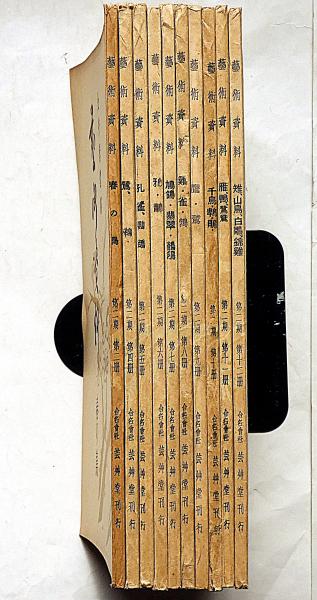 藝術資料 雉、山鳥、白鷴、錦雞 第二期 第十二册 合名會社 芸艸堂刊行
藝術資料 雁鴨鴛鴦 第二期 第十一册 合名會社 芸艸堂刊行
藝術資料 千鳥 第二期 第十册 合名會社 芸艸堂刊行
藝術資料 鷺 第二期 合名會社 芸艸堂刊行
藝術資料 雞・雀・鶉 第二期 第八册 合名會社 芸艸堂刊行
藝術資料 翡翠 第二期 第七册 合名會社 芸艸堂刊行
藝術資料 第二期 第六册 合名會社 芸艸堂刊行
藝術資料 孔雀、 第二期 第五册 合名會社 芸艸堂刊行
藝術資料 鷺、 第二期 第四册 合名會社 芸艸堂刊行
藝術資料 春の鳥 第二期 第二册 合名會社 芸艸堂刊行